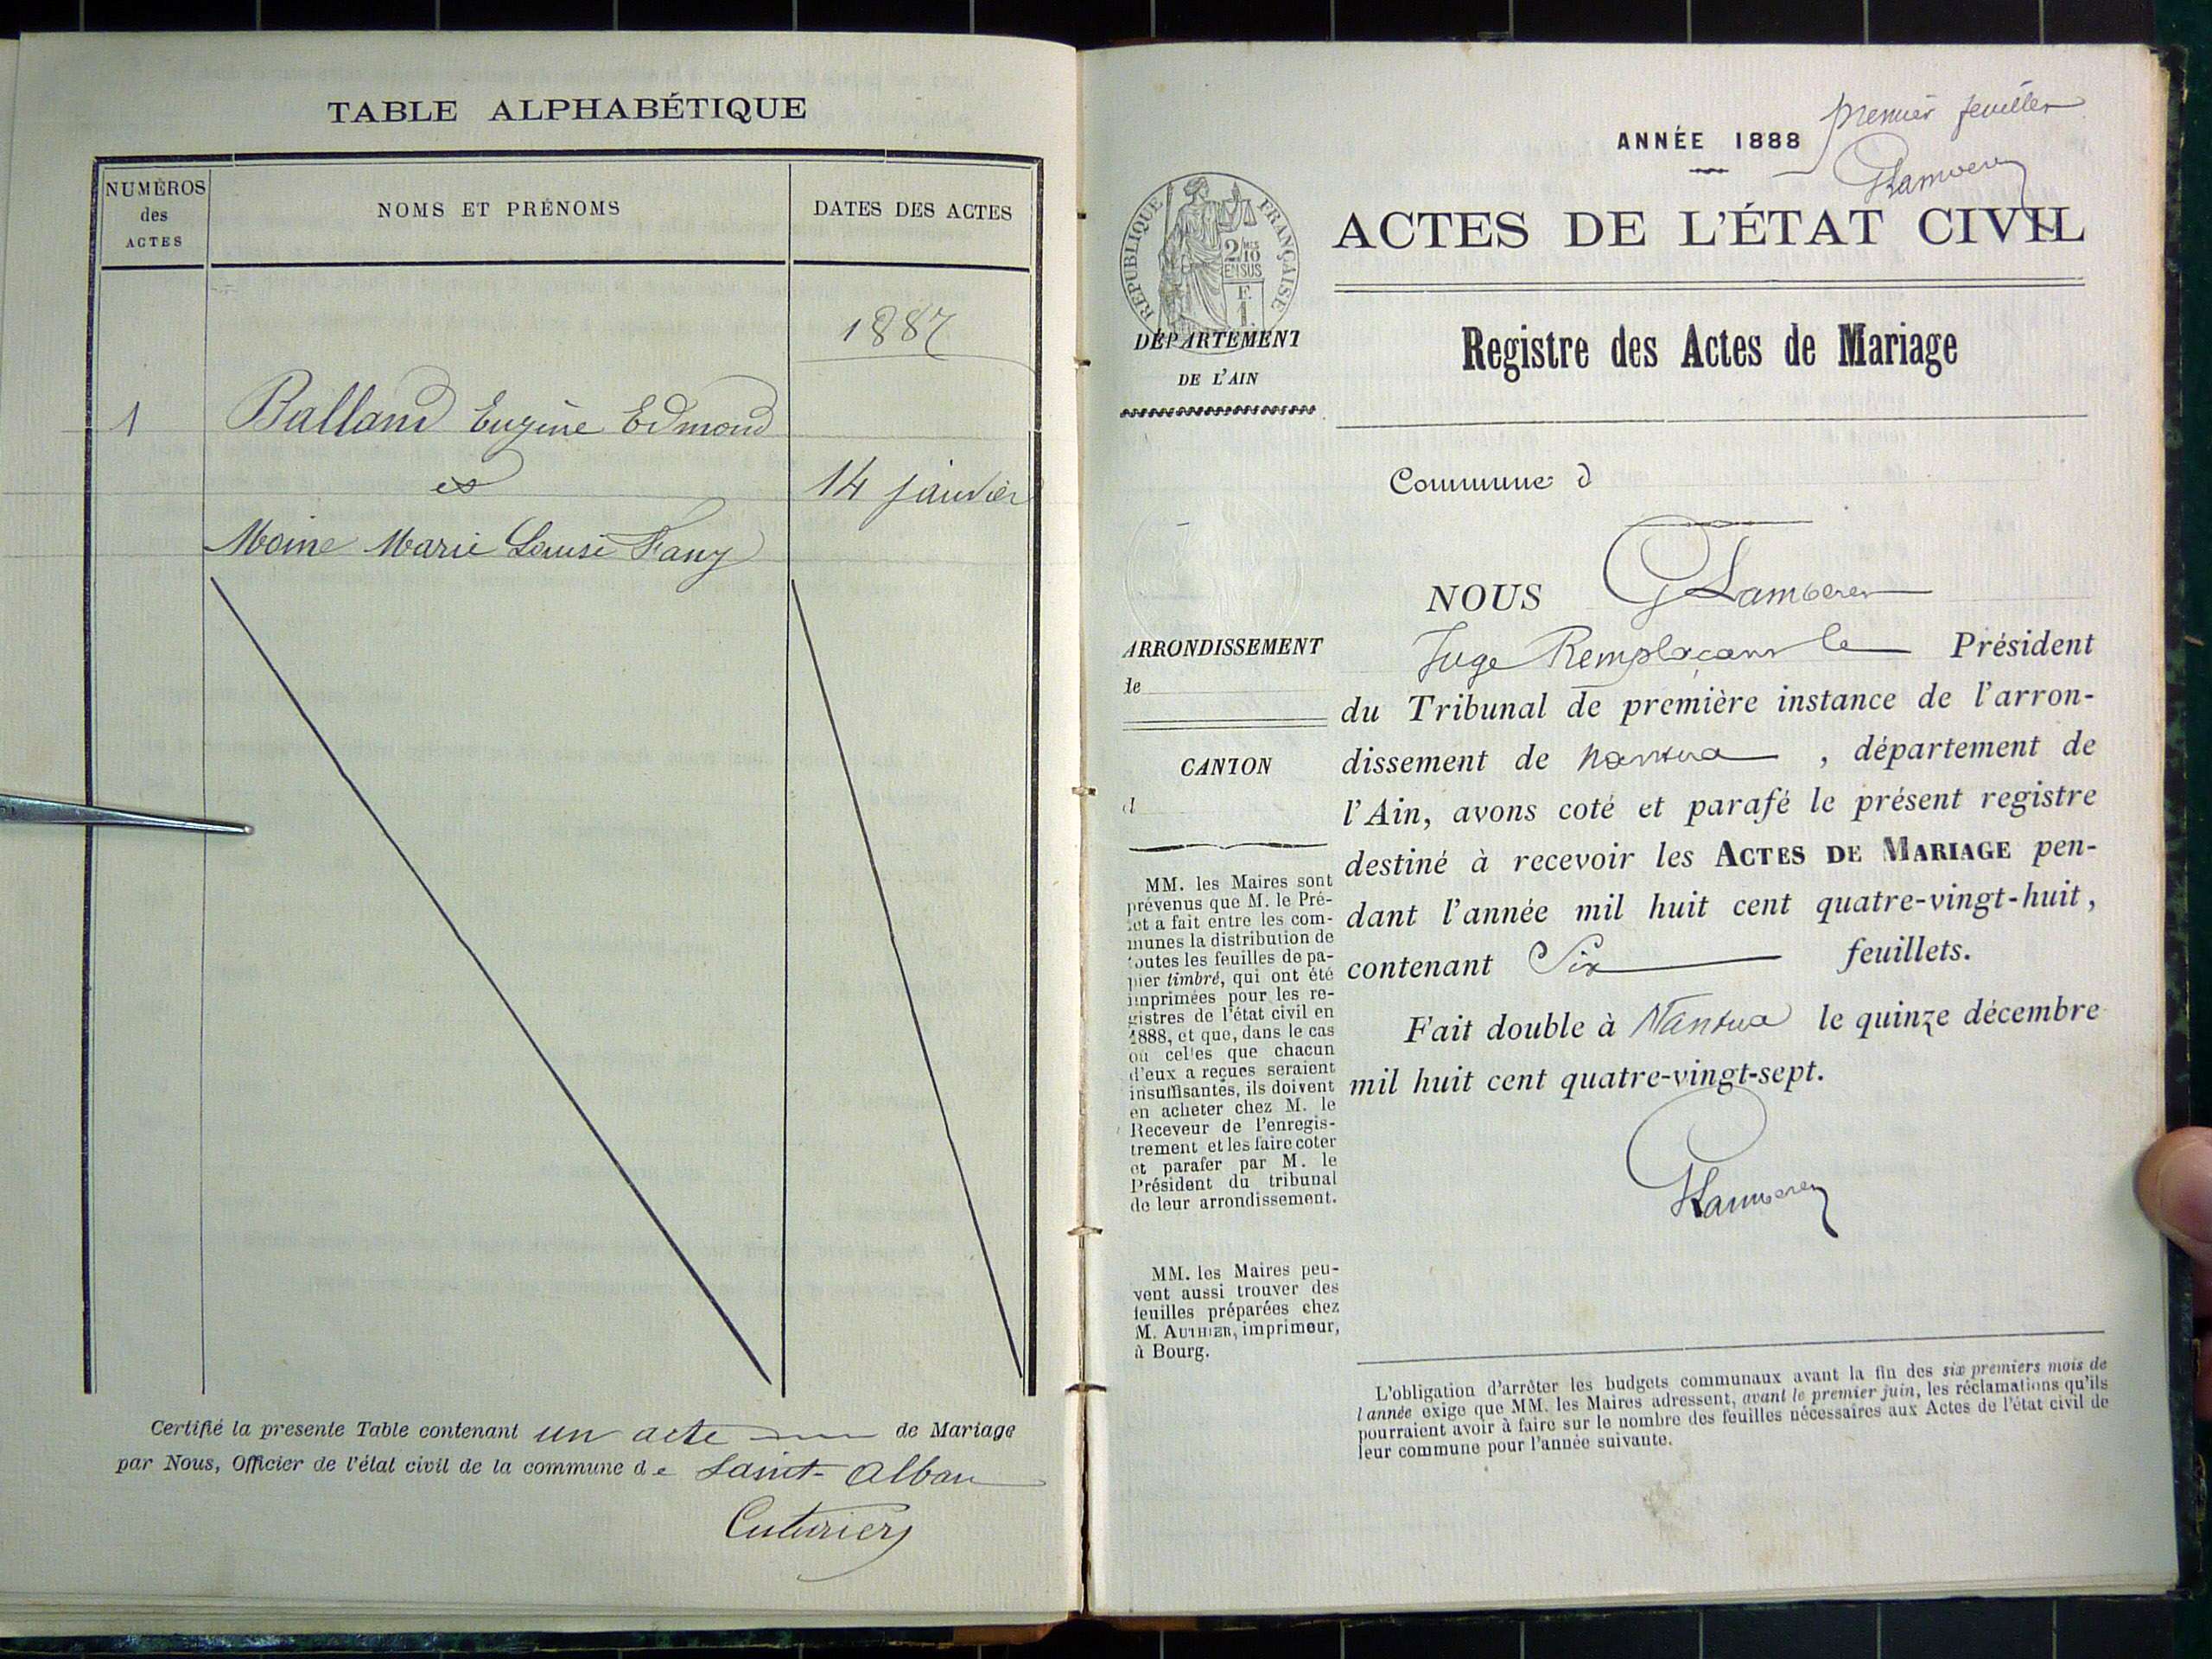 TABLE ALPHABÉTIQUE
NUMÉROS
des
ACTES
NOMS ET PRÉNOMS
DATES DES ACTES
1887
1 Balland Eugène Edmond
et
14 janvier
Moine Marie Louise Fany
Certifié la presente Table contenant un acte de Mariage
par Nous, Officier de l'état civil de la commune de Saint-Alban
Cuturier
premier feuillet
ANNÉE 1888
RÉPUBLIQUE FRANÇAISE
2/10
EN SUS
F.
1
ACTES DE L'ÉTAT CIVIL
DÉPARTEMENT
DE L'AIN
Registre des Actes de Mariage
Commune d
NOUS
Juge Remplaçant le Président
du Tribunal de première instance de l'arron-
dissement de Nantua, département de
l'Ain, avons coté et parafé le présent registre
destiné à recevoir les ACTES DE MARIAGE pen-
dant l'année mil huit cent quatre-vingt-huit,
contenant Six feuillets.
Fait double à Nantua le quinze décembre
mil huit cent quatre-vingt-sept.
ARRONDISSEMENT
de
CANTON
d
MM. les Maires sont
prévenus que M. le Pré-
fet a fait entre les com-
munes la distribution de
toutes les feuilles de pa-
pier timbré, qui ont été
imprimées pour les re-
gistres de l'état civil en
1888, et que, dans le cas
où celles que chacun
d'eux a reçues seraient
insuffisantes, ils doivent
en acheter chez M. le
Receveur de l'enregis-
trement et les faire coter
et parafer par M. le
Président du tribunal
de leur arrondissement.
MM. les Maires peu-
vent aussi trouver des
feuilles préparées chez
M. AUTHIER, imprimeur,
à Bourg.
L'obligation d'arrêter les budgets communaux avant la fin des six premiers mois de
l'année exige que MM. les Maires adressent, avant le premier juin, les réclamations qu'ils
pourraient avoir à faire sur le nombre des feuilles nécessaires aux Actes de l'état civil de
leur commune pour l'année suivante.